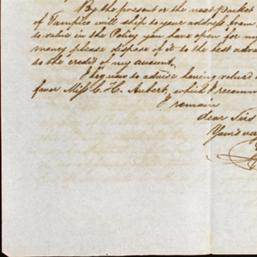 By the present or the next packet
of Tampico will ship to your address
to value in the Policy you have open for my
money please dispose of it to the best adva
to the credit of my account.
I beg now to advise having valued
favor Miss C. H. Aubert, which I recomm
I remain
dear Sirs
Yours ver